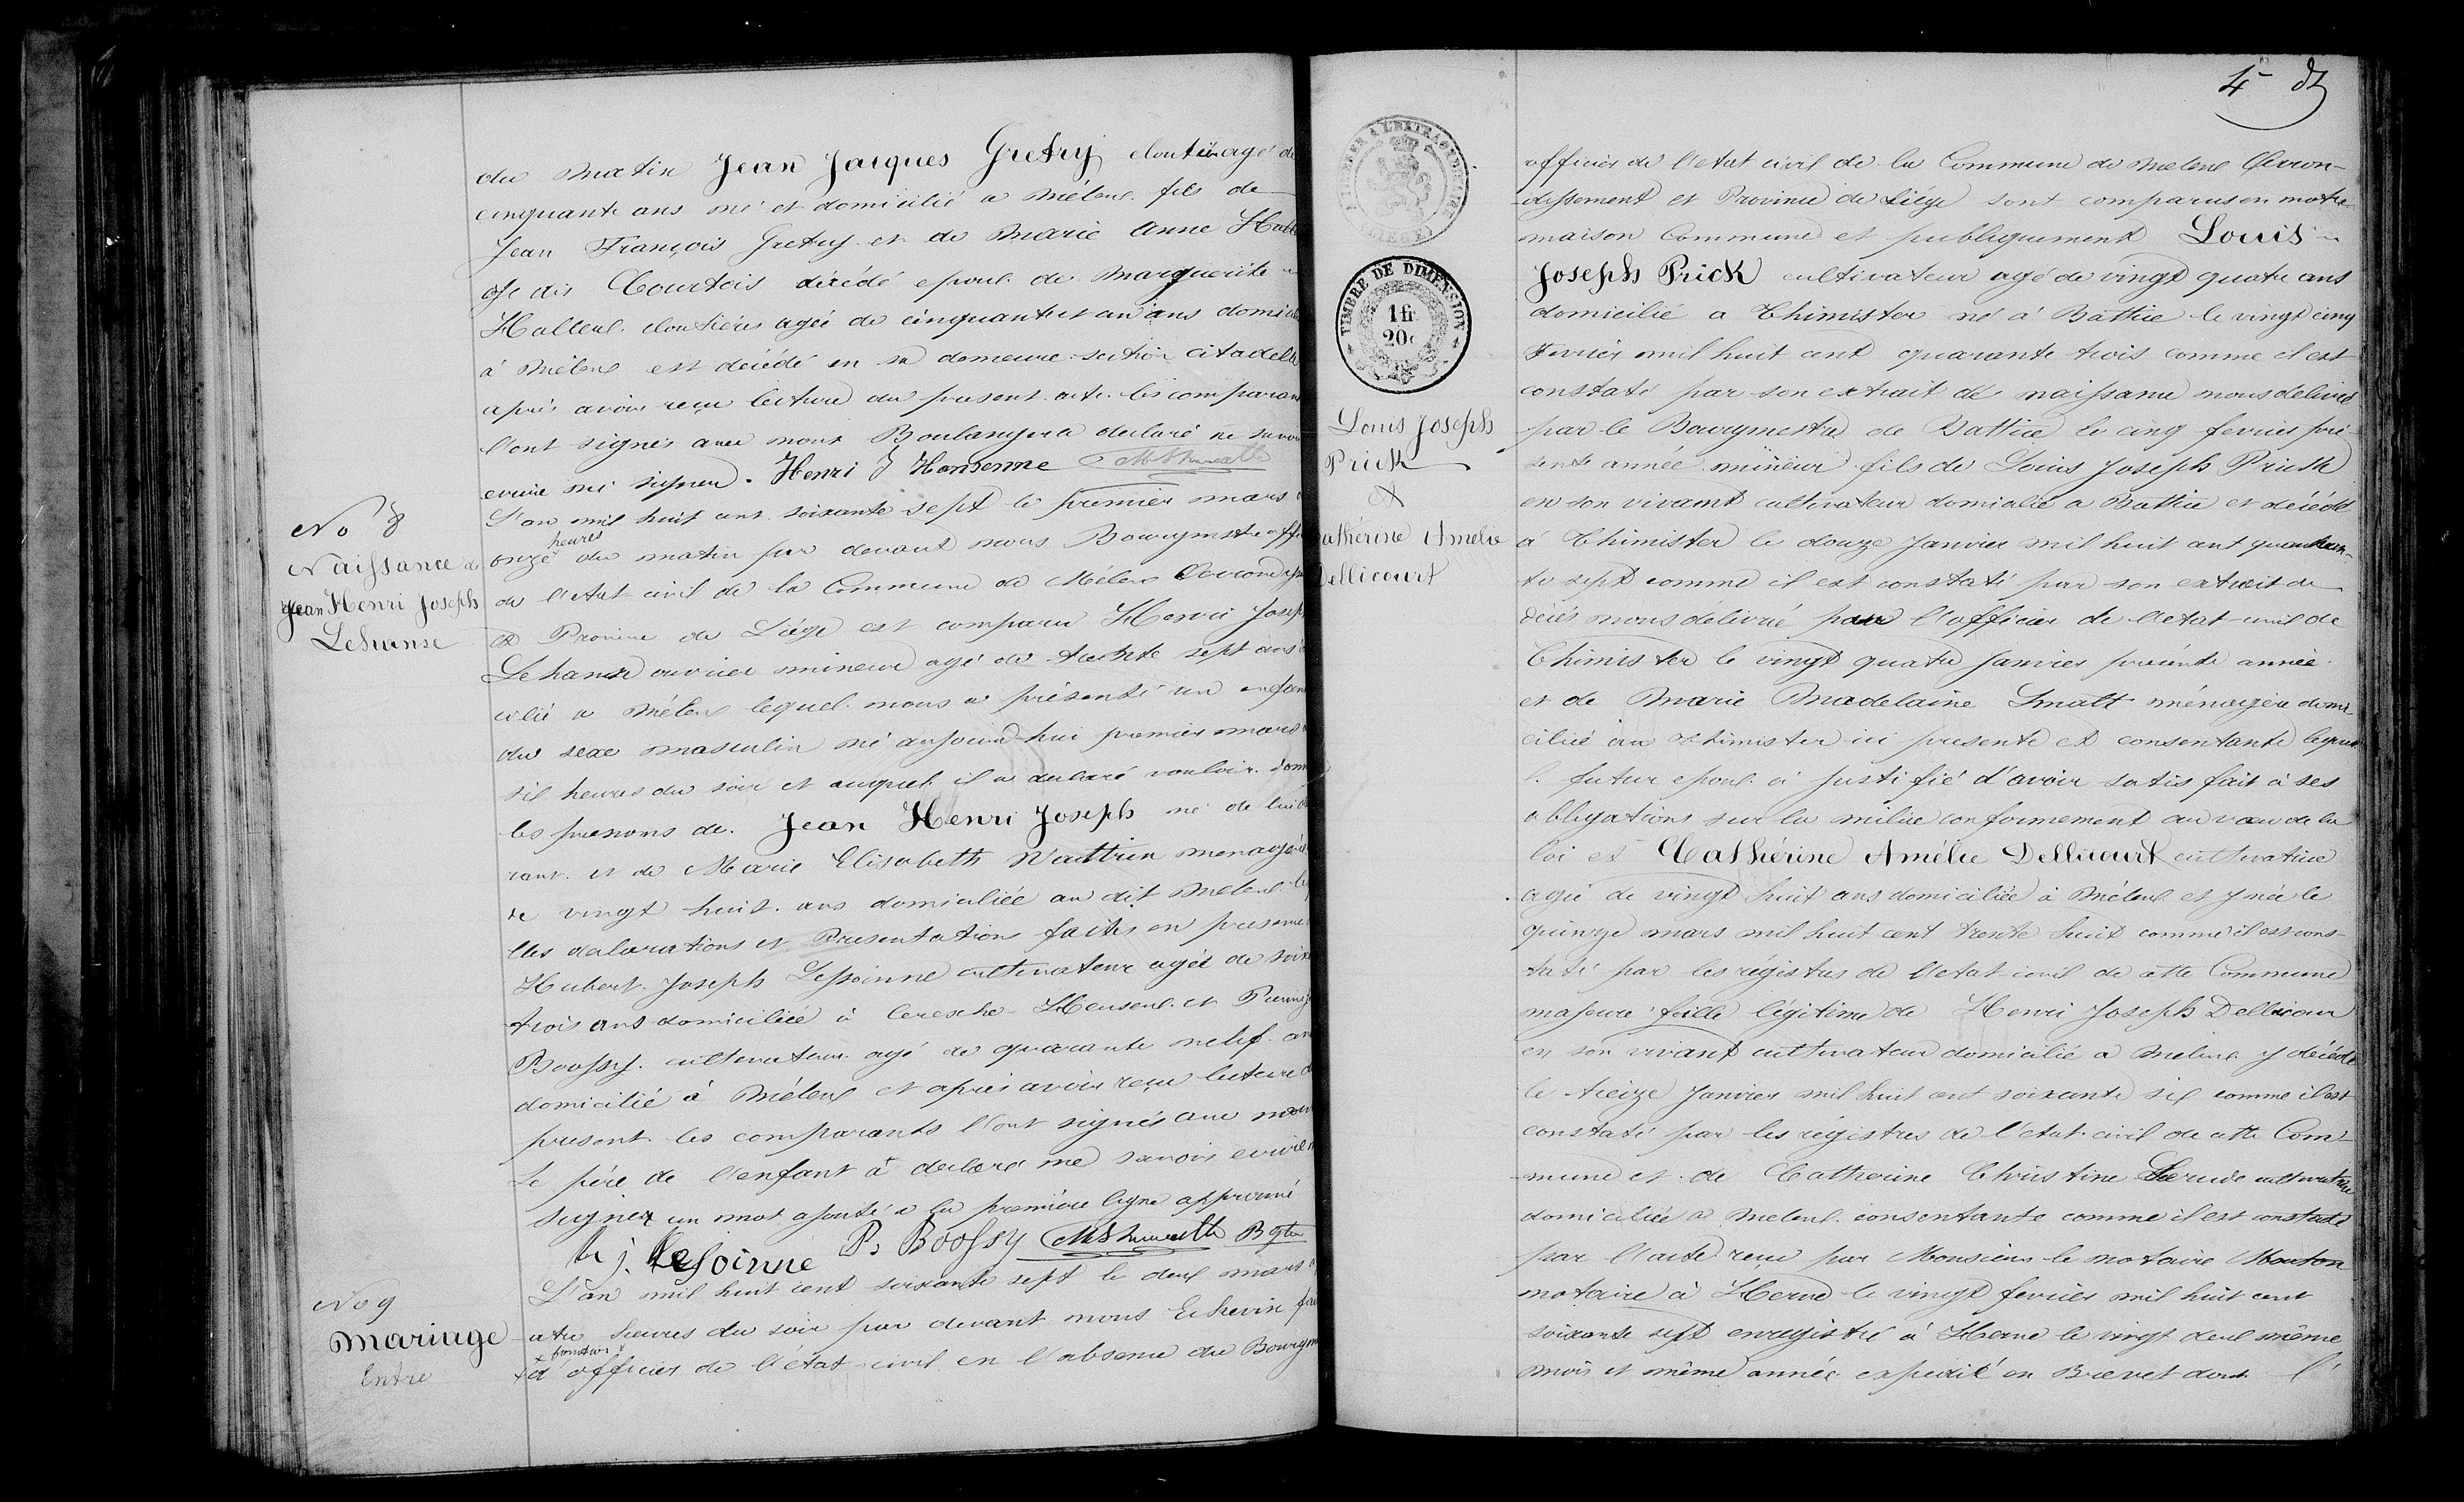 du matin Jean Jacques Gretry cloutier agé de
cinquante ans né et domicilié a Méleux fils de
Jean François Gretry et de Marie Anne
dit Courtois décédé epoux de Marguerite
Halleux cloutière agée de cinquante et un ans domici
à Méleux est décédé en sa demeure section citadelle
après avoir reçu lecture du present acte les comparan
l'ont signés avec nous Boulanger a declaré ne savoir
ecrire ni signer. Henri J Hansenne
No 8
Naissance de
Jean Henri Joseph
Lehanse
L'an mil huit cent soixante sept le premier mars
heures
onze du matin par devant nous Bourgmestre offi
de l'etat civil de la Commune de Mélen Arrondisse
et Province de Liége est comparu Henri Josep
Lehanse ouvrier mineur agé de trente sept ans
cilié a Mélen lequel nous a présenté un enfan
du sexe masculin né aujourd'hui premier mars
six heures du soir et auquel il a declaré vouloir donn
les prenoms de Jean Henri Joseph né de lui
rant et de Marie Elisabeth Wautrin menagère
de vingt huit ans domiciliée au dit Meleux
lles declarations et Presentation faites en presence
Hubert Joseph Lessoinne cultivateur agée de soix
trois ans domiciliée à Cerexhe-Heuseux et Pierre
Boossy cultivateur agé de quarante neuf an
domicilié à Méleux et après avoir reçu lecture d
present les comparants l'ont signés avec nous
Le père de l'enfant à declaré ne savoir ecrire
signer un mot ajouté a la première ligne approuvé
h j. LeSoinne P. Boossy Bgtre
No 9
Mariage
Entre
L'an mil huit cent soixante sept le deux mars
atre heures du soir par devant nous Echevin fai
fonction
d'officier de l'état civil en l'absence du Bourgm
4
A L'EXTRAORDINAIRE
(LIÉGE)
TIMBRE DE DIMENSION
1fr
20c
Louis Joseph
Prick
et
athérine Amelie
Dellicourt
officier de l'etat civil de la Commune de Melenx Arron-
-dissement et Province de Liége sont comparus en notre
maison Commune et publiquement Louis
Joseph Prick cultivateur agé de vingt quatre ans
domicilié a Thimister né à Battice le vingt cinq
Fevrier mil huit cent quarante trois comme il est
constaté par son extrait de naissance nous delivré
par le Bourgmestre de Battice le cinq fevrier pré-
sente année mineur fils de Louis Joseph Prick
en son vivant cultivateur domicilié a Battice et décédé
à Thimister le douze Janvier mil huit cent quaran-
te sept comme il est constaté par son extrait de
décés nous delivré par l'officier de l'etat civil de
Thimister le vingt quatre Janvier présente année
et de Marie Madelaine Smatt ménagère domi
ciliée au Thimister ici presente et consentante leque
l. futur epoux a justifié d'avoir satisfait à ses
obligations sur la milice conformement au voeu de la
loi et Cathérine Amélie Dellicourt cultivatrice
agée de vingt huit ans domiciliée à Méleux et y née le
quinze mars mil huit cent trente huit comme il est cons-
taté par les régistres de l'etat civil de cette Commune
majeure fille légitime de Henri Joseph Dellicour
en son vivant cultivateur domicilié a Meleux y décédé
le treize Janvier mil huit cent soixante six comme il est
constaté par les registres de l'état civil de cette Com-
-mune et de Catherine Christine cultivatrice
domiciliée a Meleux consentante comme il est constaté
par l'acte reçu par Monsieur le notaire Mouton
notaire à Herve le vingt fevrier mil huit cent
soixante sept enregistré à Herve le vingt deux même
mois et même année expedié en Brevet dont l'